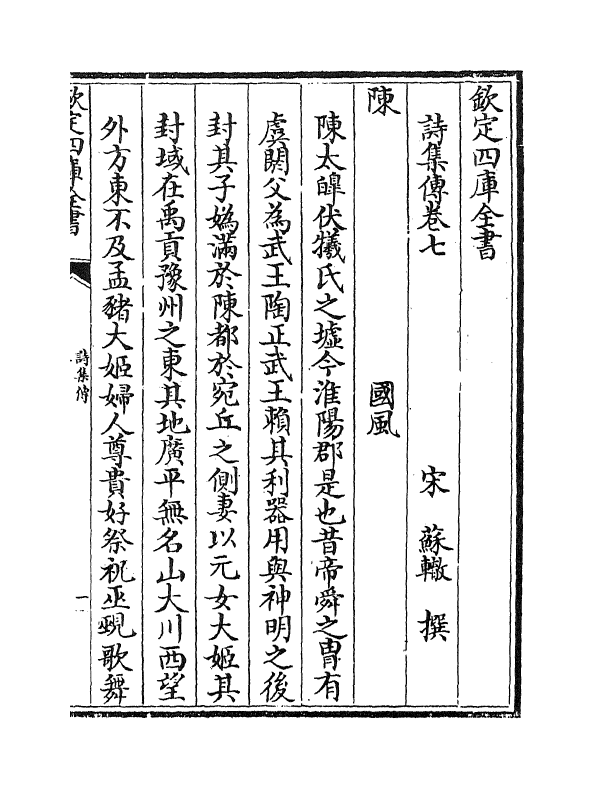 欽定四庫全書
詩集傳卷七
宋 蘇轍 撰
陳 國風
陳太皥伏犧氏之墟今淮陽郡是也昔帝舜之胄有
虞閼父為武王陶正武王賴其利器用與神明之後
封其子媯滿於陳都於宛丘之側妻以元女大姬其
封域在禹貢豫州之東其地廣平無名山大川西望
外方東不及孟豬大姬婦人尊貴好祭祝巫覡歌舞
欽定四庫全書
詩集傳
一